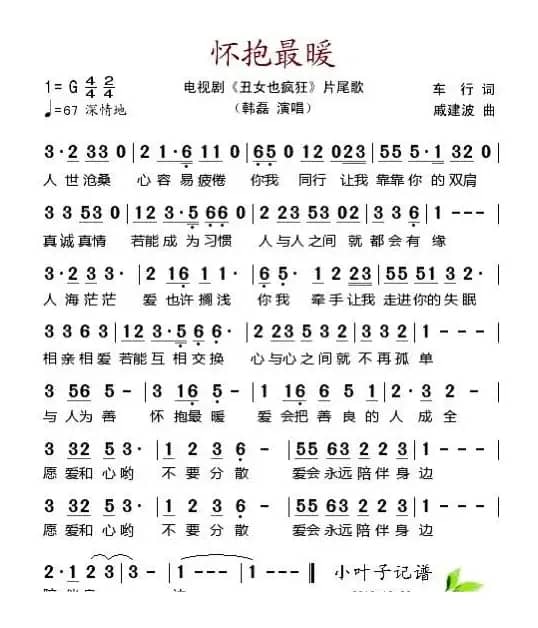 怀抱最暖
1= G 4/4 2/4
电视剧《丑女也疯狂》片尾歌
车 行 词
♩=67 深情地
（韩磊 演唱）
戚建波 曲
3·2 33 0 | 2 1·6 11 0 | 65 0 102 023 | 55 5·1 32 0 |
人世沧桑 心容易疲倦 你我 同行 让我 靠靠你的双肩
3 3 53 0 | 12 3·5 66 0 | 2 023 53 02 | 3 3 6 | 1 - - - |
真诚真情 若能成为习惯 人与人之间 就都会有 缘
3·2 33· | 2 16 11· | 6 5· 1 2 23 | 55 51 3 2· |
人海茫茫 爱也许搁浅 你我 牵手让我 走进你的失眠
3 3 63 | 12 3·5 6 6· | 2 23 5 3 2 3 6 | 1 - - - |
相亲相爱 若能互相交换 心与心之间就不再孤 单
3 56 5 - | 3 16 5 - | 1 6 6 5 1 | 2 2 1 2 3 |
与人为善 怀抱最暖 爱会把善良的人成全
3 32 5 3· | 1 2 3 6 - | 55 63 2 2 3 | 1 - - - |
愿爱和心哟 不要分散 爱会永远陪伴身边
3 32 5 3· | 1 2 3 6 - | 55 63 2 2 3 | 1 - - - |
愿爱和心哟 不要分散 爱会永远陪伴身边
2·1 2 3 | 3 - - · | 1 - - - | 1 - - - ‖
小叶子记谱